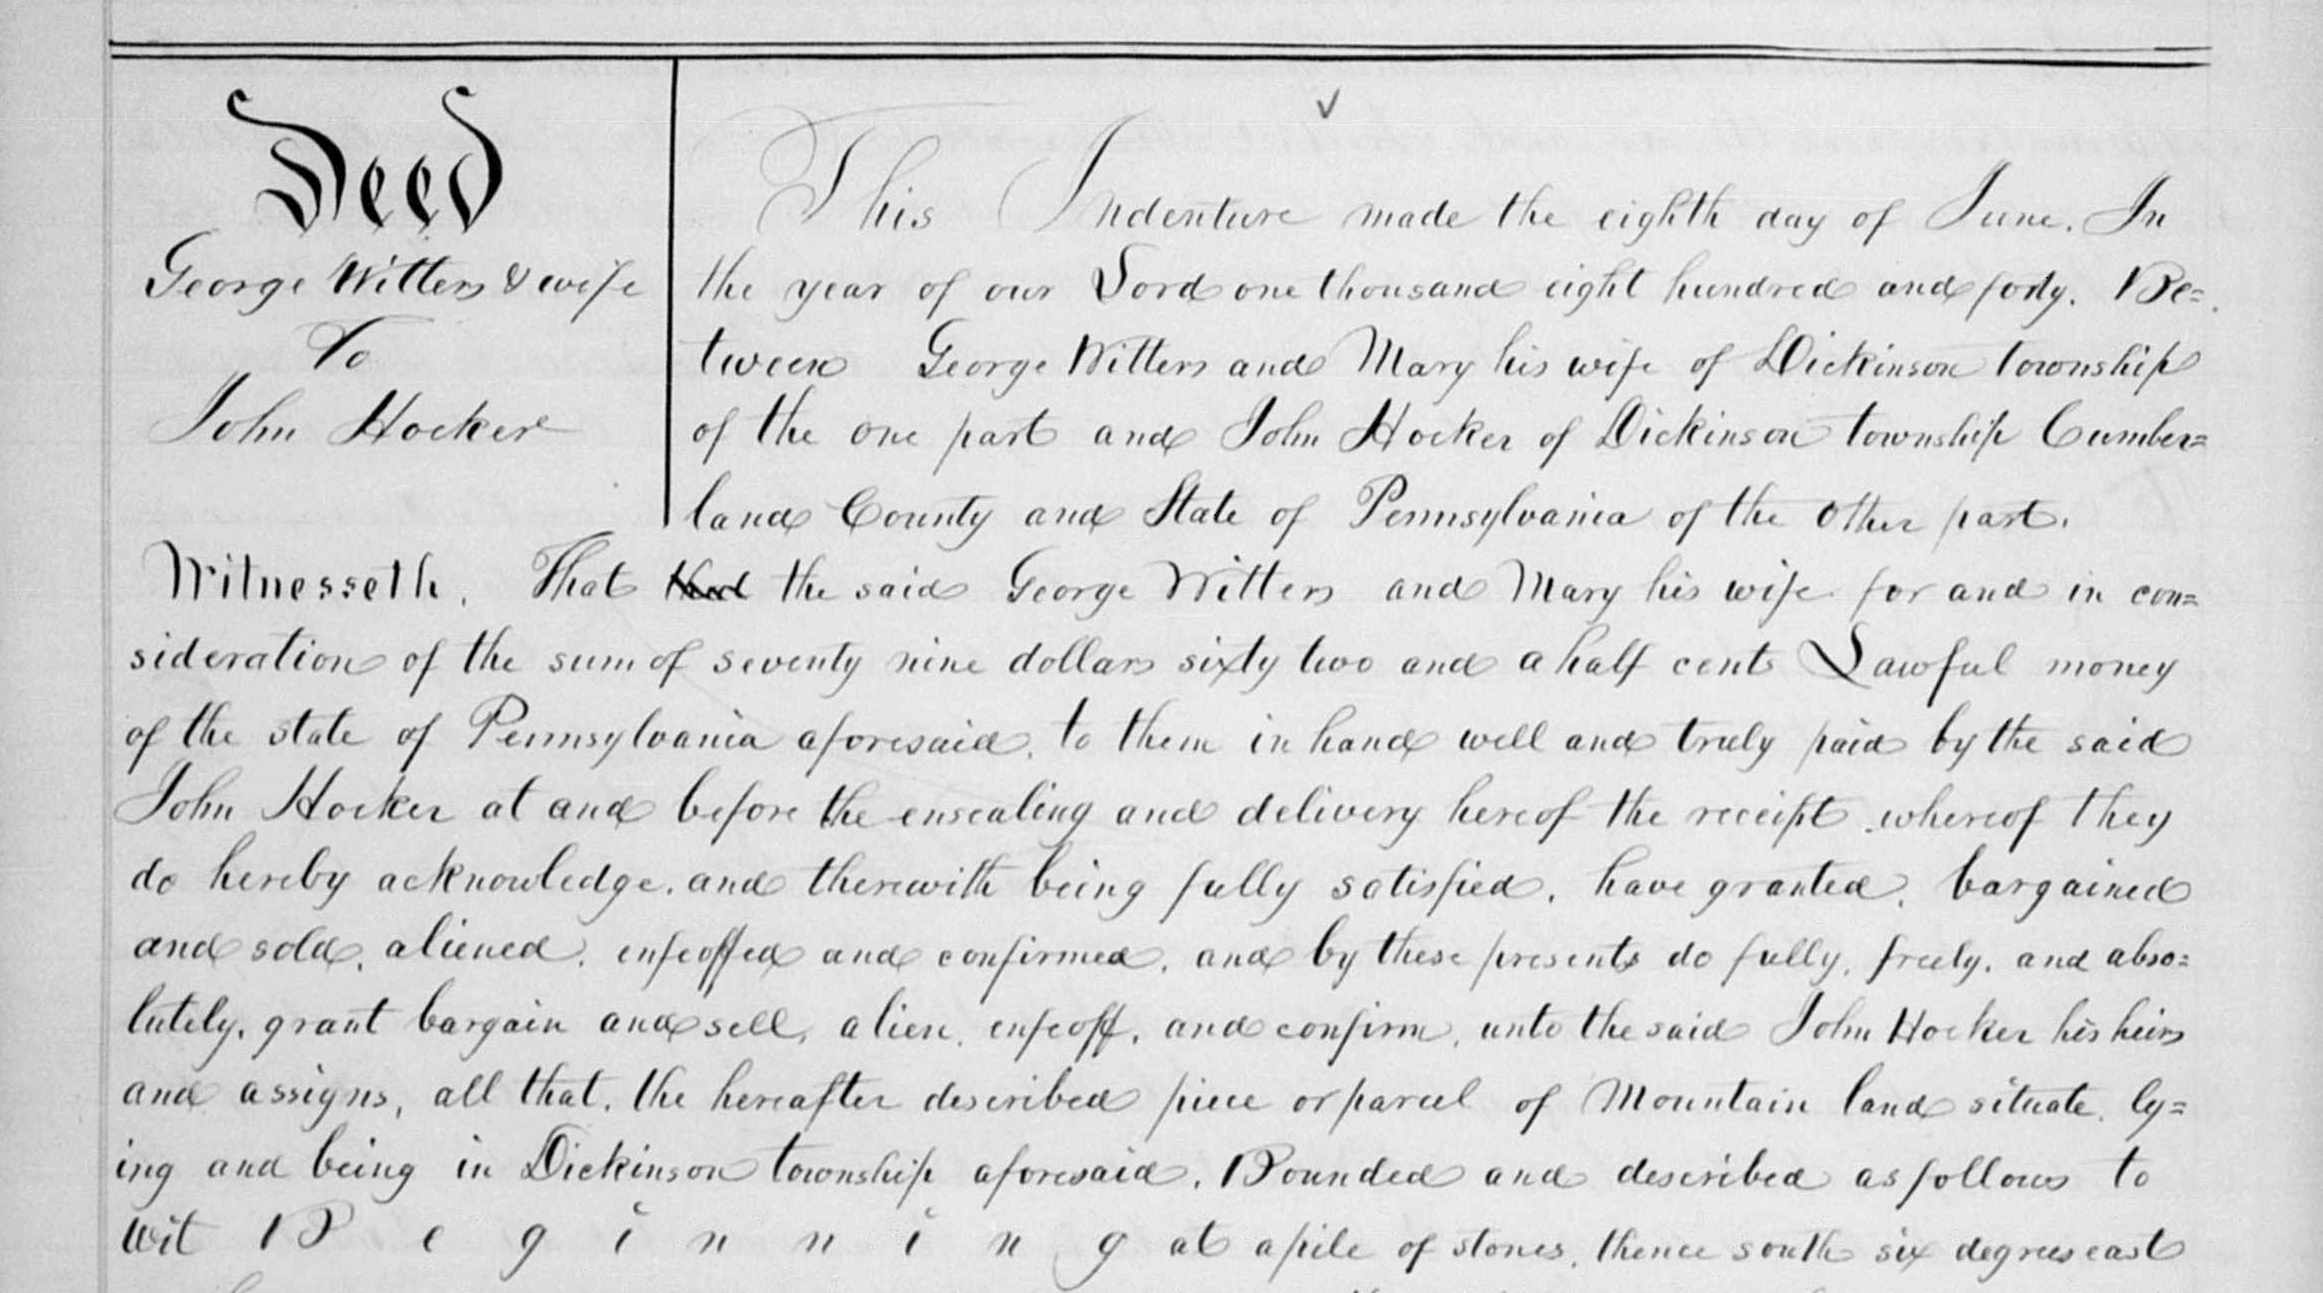 Deed
George Witters & wife
To
John Hocker
This Indenture made the eighth day of June. In
the year of our Lord one thousand eight hundred and forty. Be=
tween George Witters and Mary his wife of Dickinson township
of the one part and John Hocker of Dickinson township Cumber=
land County and State of Pennsylvania of the other part.
Witnesseth. That the said George Witters and Mary his wife for and in con=
sideration of the sum of seventy nine dollars sixty two and a half cents Lawful money
of the state of Pennsylvania aforesaid. to them in hand well and truly paid by the said
John Hocker at and before the ensealing and delivery hereof the receipt whereof they
do hereby acknowledge. and therewith being fully satisfied. have granted. bargained
and sold. aliened. enfeoffed and confirmed. and by these presents do fully. freely. and abso=
lutely. grant bargain and sell, alien. enfeoff. and confirm. unto the said John Hocker his heirs
and assigns, all that. the hereafter described piece or parcel of Mountain land situate. ly=
ing and being in Dickinson township aforesaid. Bounded and described as follows to
wit B e g i n n i n g at a pile of stones. thence south six degrees east